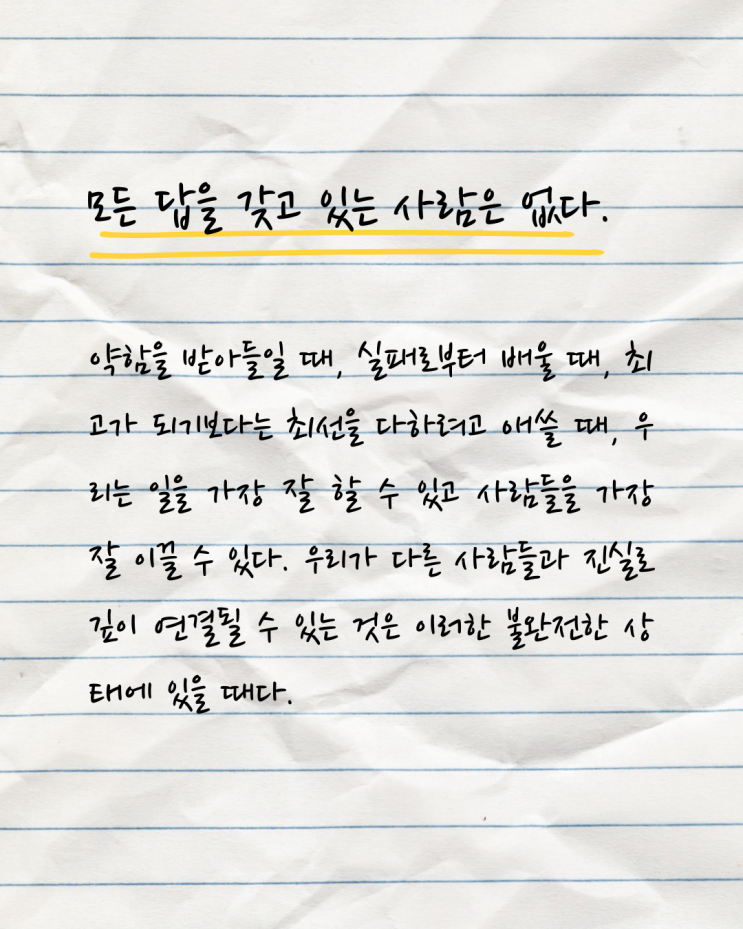 모든 답을 갖고 있는 사람은 없다.
약함을 받아들일 때, 실패로부터 배울 때, 최
고가 되기보다는 최선을 다하려고 애쓸 때, 우
리는 일을 가장 잘 할 수 있고 사람들을 가장
잘 이끌 수 있다. 우리가 다른 사람들과 진실로
깊이 연결될 수 있는 것은 이러한 불완전한 상
태에 있을 때다.